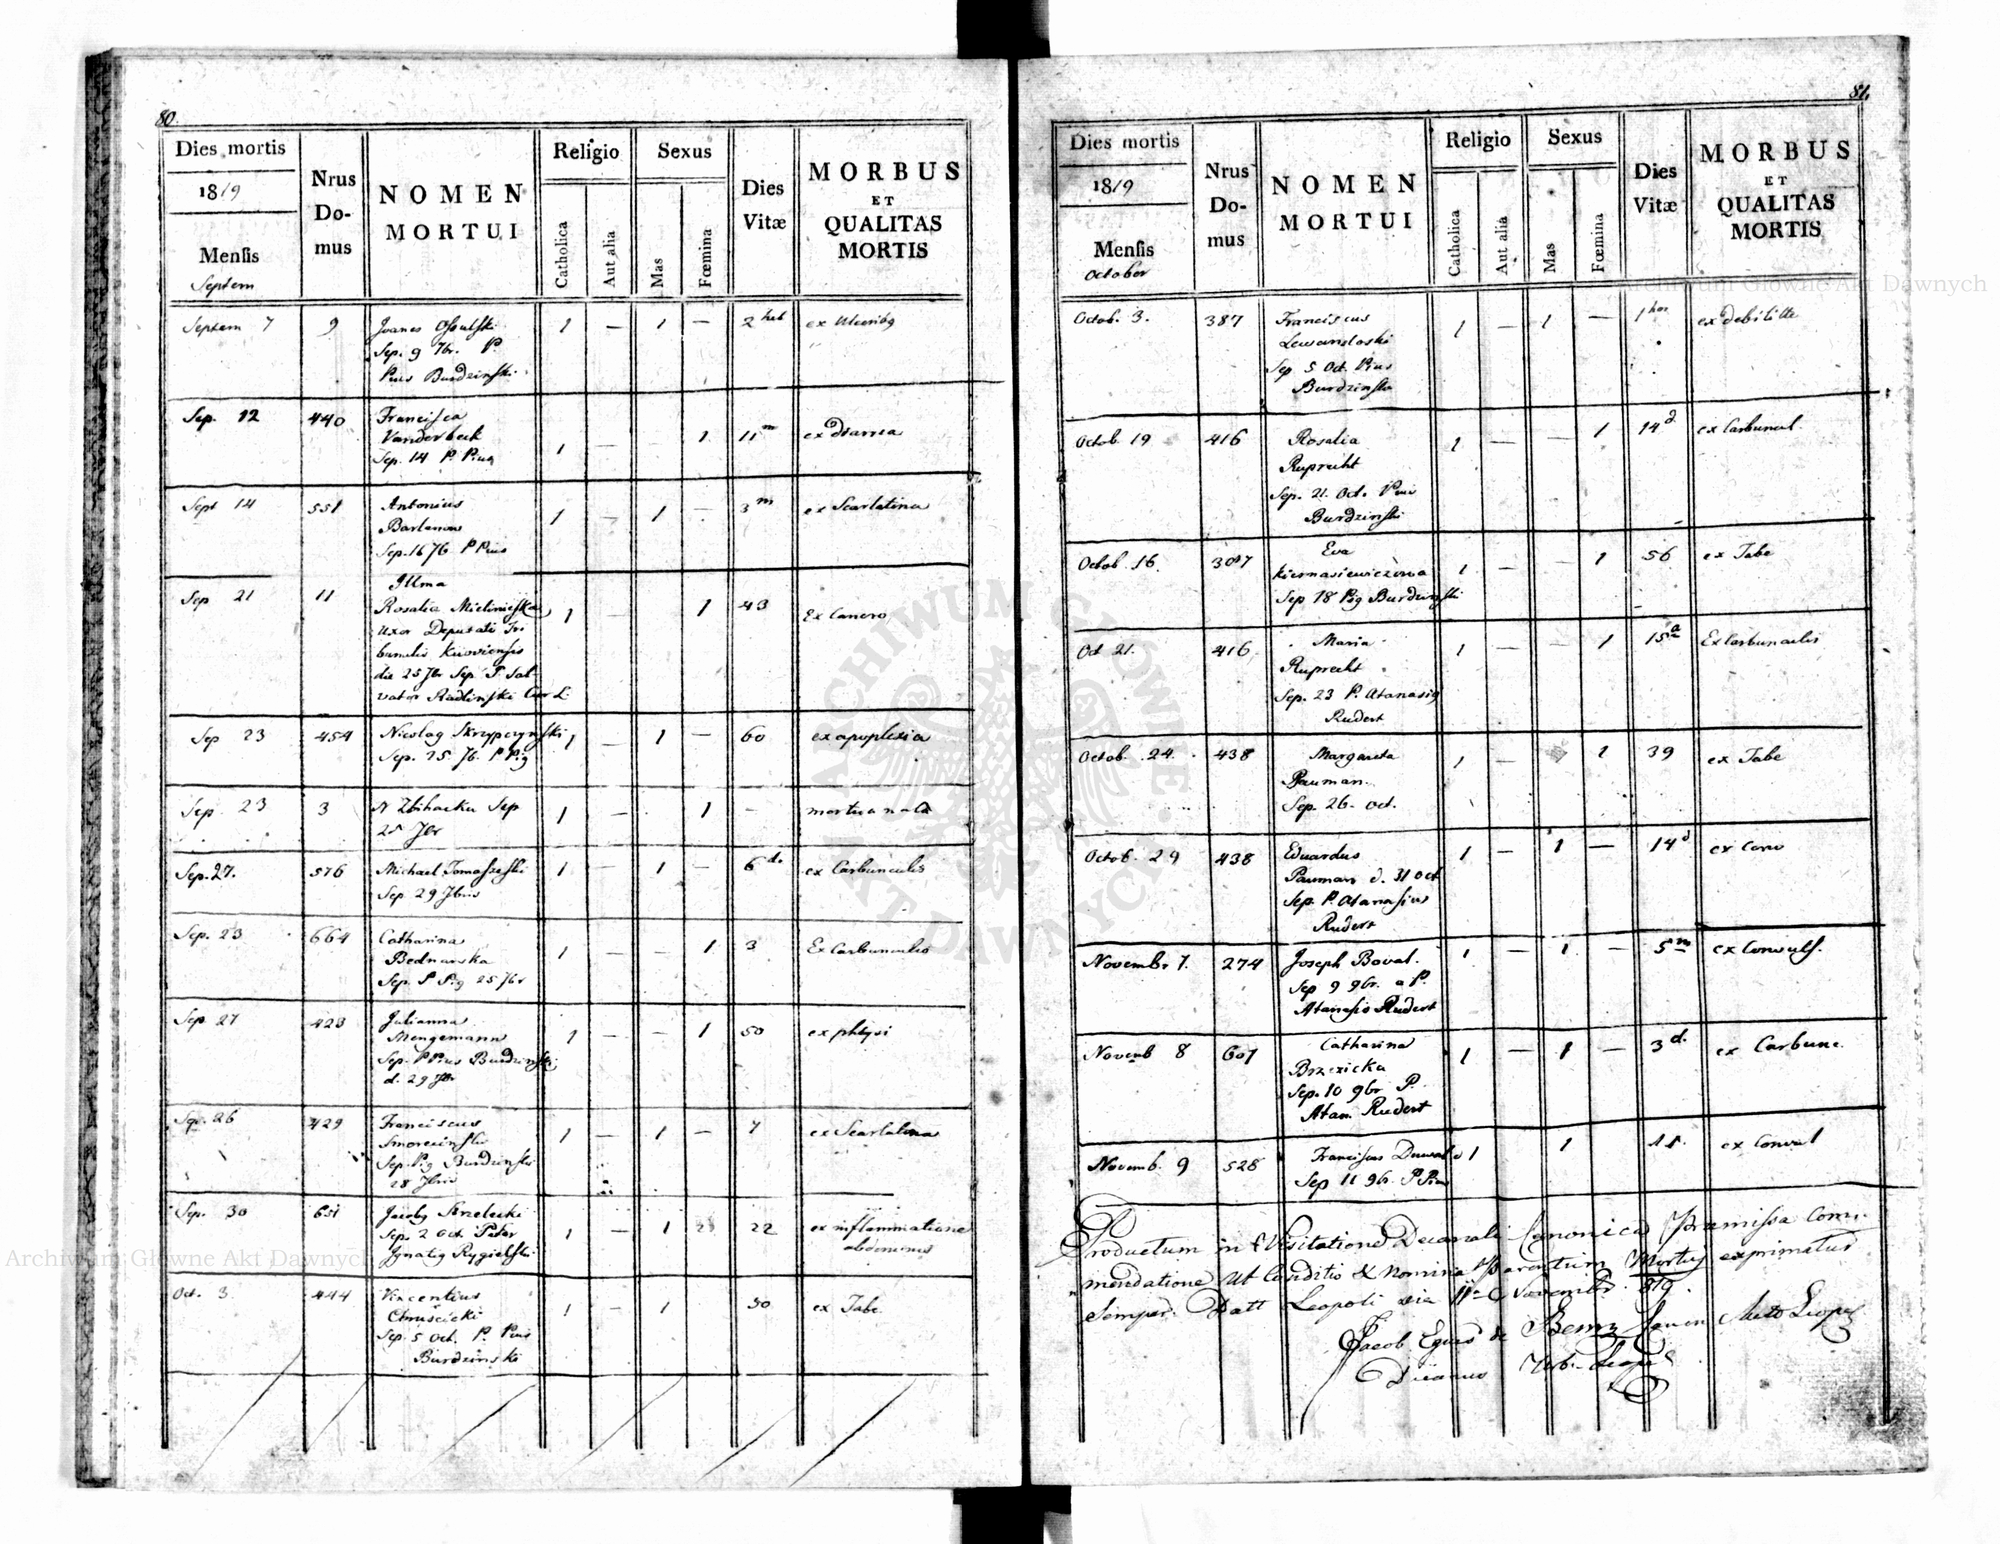 80.
Dies mortis
1819
Mensis
Septem
Nrus
Do-
mus
NOMEN
MORTUI
Religio
Catholica
Aut alia
Sexus
Mas
Fœmina
Dies
Vitæ
MORBUS
ET
QUALITAS
MORTIS
Septem 7 9 Joanes 1 — 1 — 2
Sep. 9 7br. P.
Pius Burdzinski
Sep. 12 440 Francisca
Vanderbeck 1 — — 1 11 m ex diarrea
Sep. 14 P. Pius
Sept 14 551 Antonius 1 — 1 — 3 m ex Scarlatina
Sep. 16 7b P Pius
Sep 21 11 Illma
Rosalia 1 — — 1 43 Ex Cancro
Uxor Deputati Tri
bunalis Kiioviensis
die 25 7br Sep. P Sal
vator Radlinski Cur L.
Sep 23 454 Nicolag Skrzypczynski 1 — 1 — 60 ex apoplexia
Sep. 25 7b. P Pig
Sep. 23 3 N Sep 1 — 1 — mortua nata
25 7br
Sep. 27. 576 Michael Tomaszeski 1 — 1 — 6 d. ex Carbunculis
Sep 29 7bris
Sep. 23 664 Catharina
Bednarska 1 — — 1 3 Ex Carbunculis
Sep. P Pig 25 7br
Sep. 27 423 Julianna
Mengemann 1 — — 1 50 ex phtysi
Sep. P Pius Burdzinski
d. 29 7br
Sep. 26 429 Franciscus 1 — 1 — 7 ex Scarlatina
Sep. Pig Burdzinski
28 7bris
Sep. 30 651 Jacobg Strzelecki 1 — 1 22 ex inflammatione
Sep. 2 Oct. Pater abdominis
Ignatig Rygielski
Oct. 3 444 Vincentius 1 — 1 50 ex Tabe
Chruscicki
Sep. 5 Oct. P. Pius
Burdzinski
81.
Dies mortis
1819
Mensis
October
Nrus
Do-
mus
NOMEN
MORTUI
Religio
Catholica
Aut alia
Sexus
Mas
Fœmina
Dies
Vitæ
MORBUS
ET
QUALITAS
MORTIS
Octob. 3. 387 Franciscus 1 — 1 — 1 hor ex debilitte
Lewandoski
Sep 5 Oct. Pius
Burdzinski
Octob. 19 416 Rosalia 1 — — 1 14 d. ex Carbuncul.
Ruprecht
Sep. 21. Oct. Pius
Burdzinski
Octob. 16. Eva 1 — — 1 56 ex Tabe
Kiernasiewiczowa
Sep 18 Pig Burdzinski
Oct 21. 416 Maria 1 — — 1 15 a Ex Carbunculis
Ruprecht
Sep. 23 P. Atanasig
Rudert
Octob. 24. 438 Margareta 1 — 1 39 ex Tabe
Pauman.
Sep. 26. Oct.
Octob. 29 438 Eduardus 1 — 1 — 14 d
Pauman d. 31 Oct
Sep. P. Atanasius
Rudert
Novembr 7. 274 Joseph Boval. 1 — 1 — 5 m ex Convuls.
Sep 9 9br. a P.
Atanasio Rudert
Novemb 8 607 Catharina 1 — 1 — 3 d. ex Carbunc.
Brzezicka
Sep. 10 9br P.
Atan. Rudert
Novemb. 9 528 Franciscus 1 1 ex Convul
Sep 11 9br. P Pius
Productum in Visitatione Decanali Canonica Præmissa Com-
mendatione Ut Conditio & Nomina Parentum Mortuj exprimatur
Semper. Datt Leopoli die 11 a Novembr. 819.
Jacob Eques de Bem Metr Leopol
Decanus Urb. Leopol
Archiwum Główne Akt Dawnych
Archiwum Główne Akt Dawnych
ARCHIWUM GŁÓWNE AKT DAWNYCH